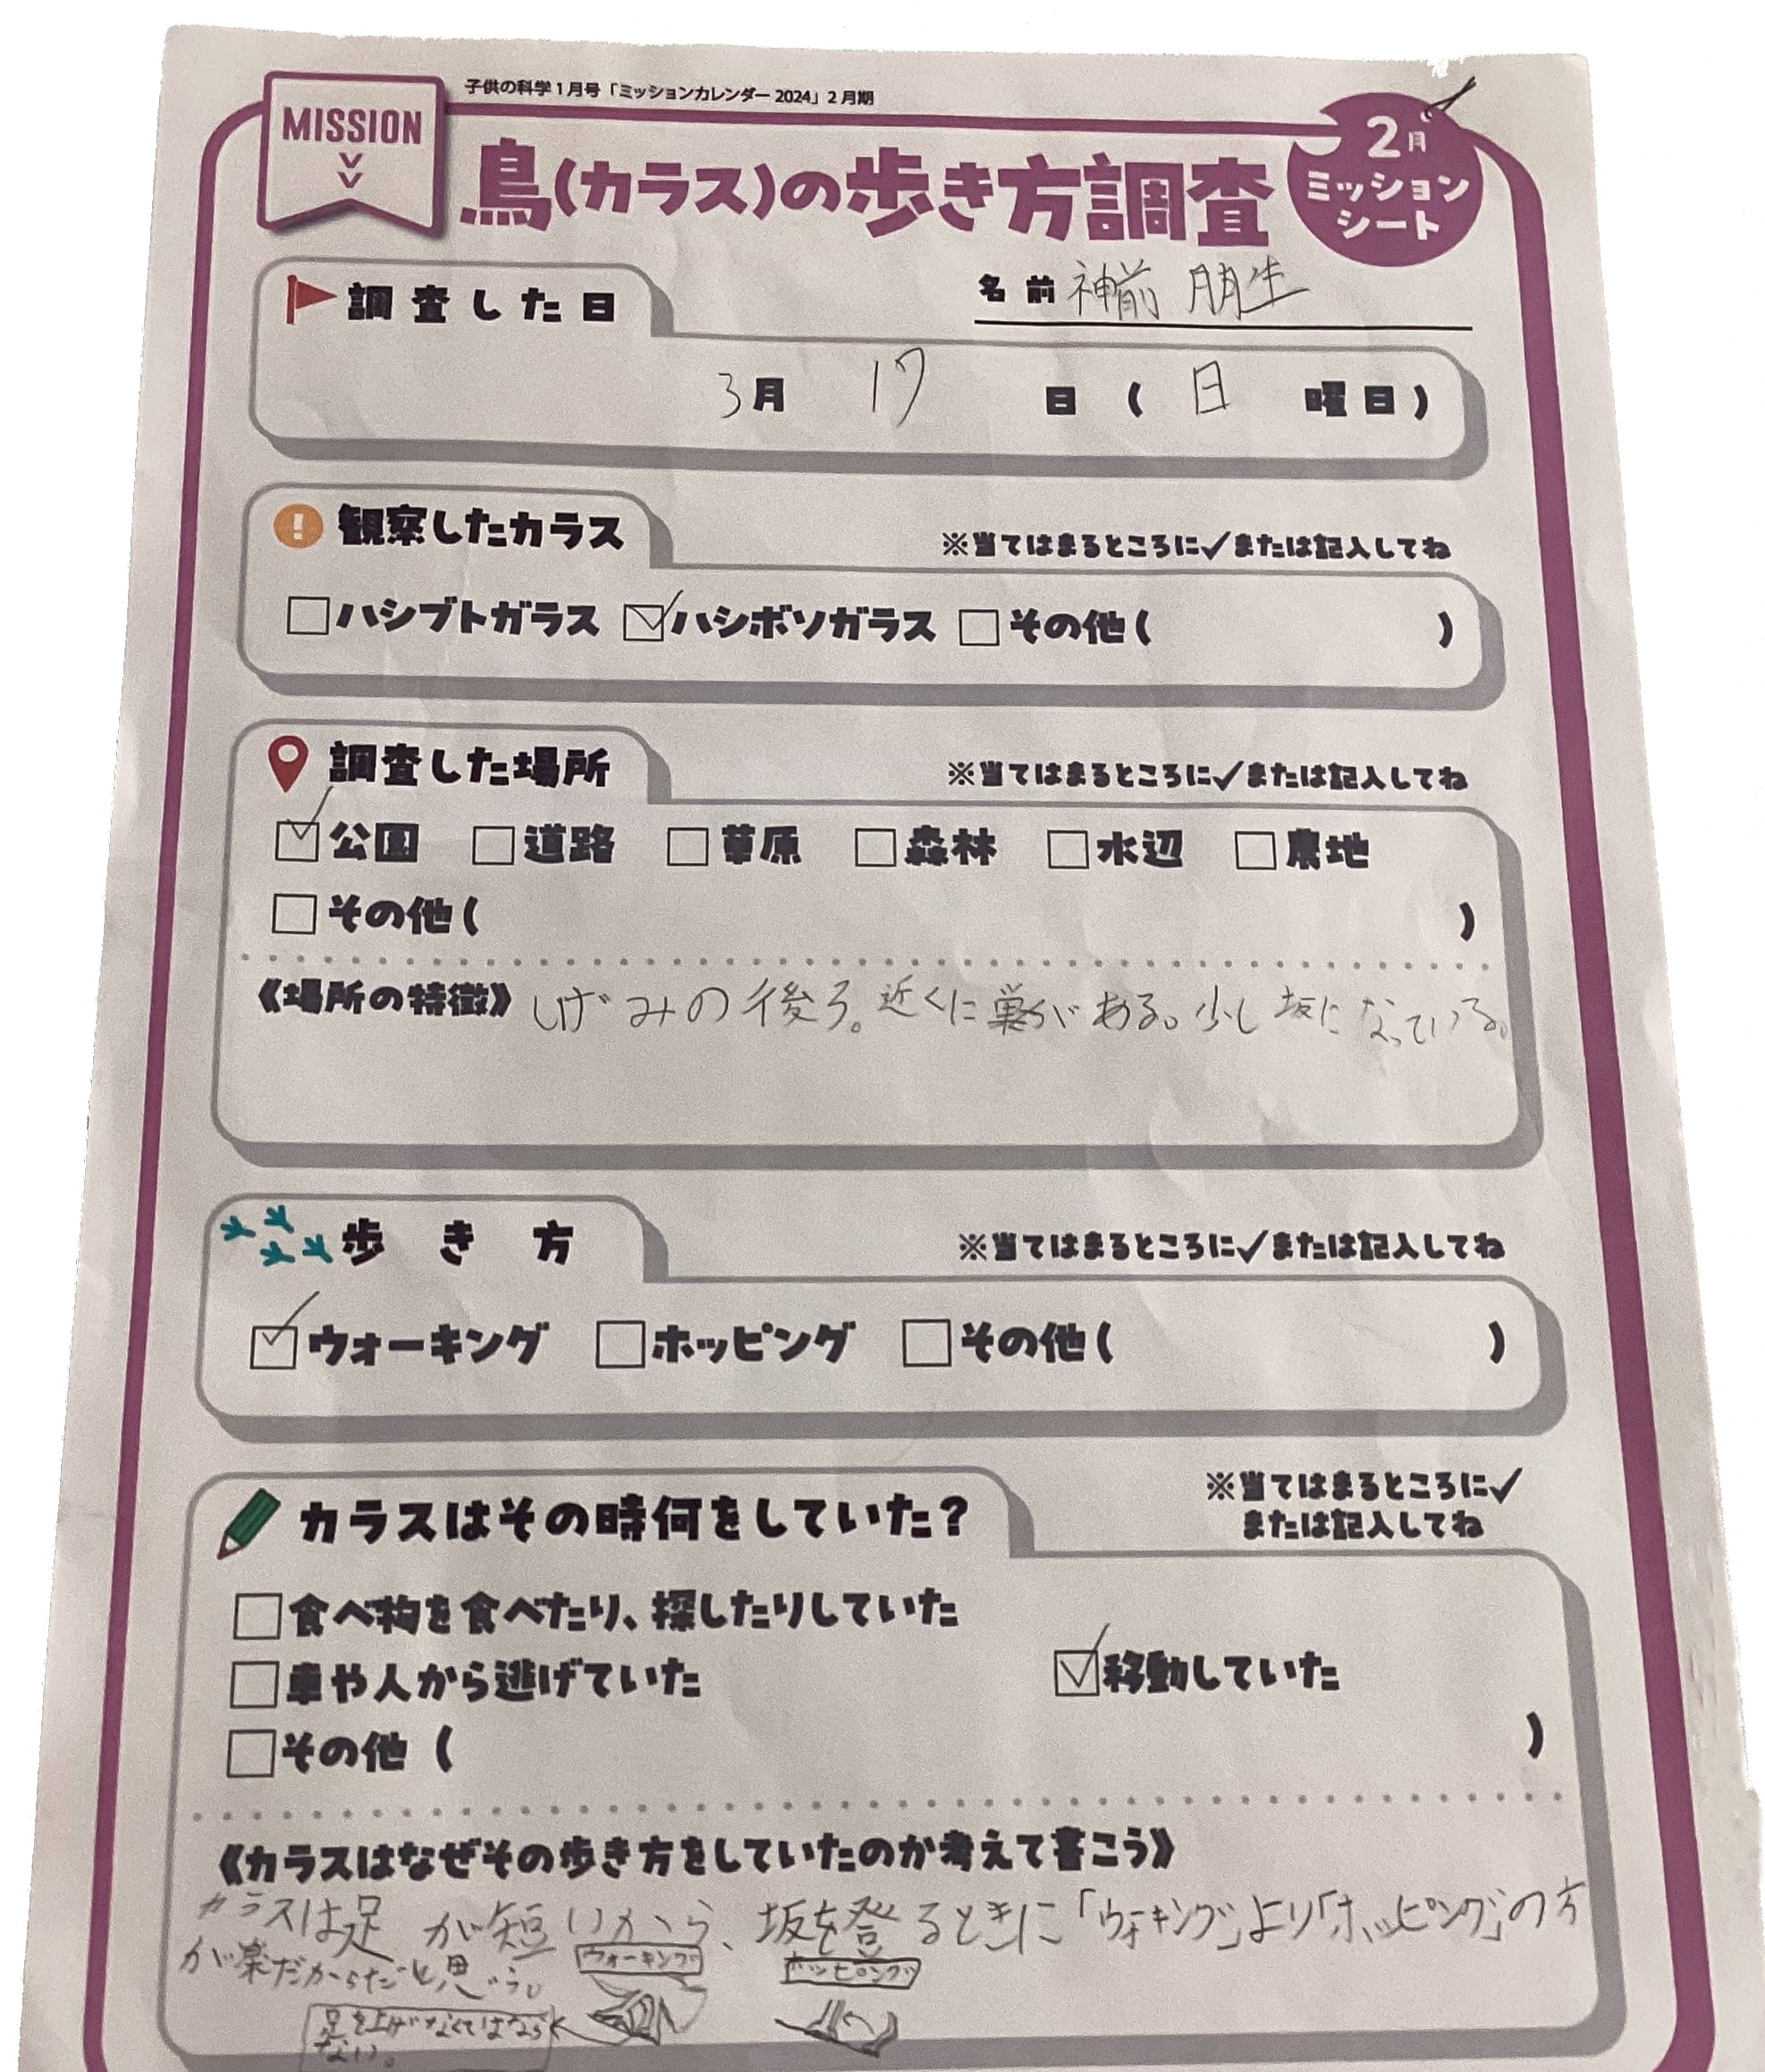 子供の科学1月号「ミッションカレンダー2024」2月期
MISSION
鳥(カラス)の歩き方調査
2月
ミッション
シート
名前 神前 朋生
調査した日
3月 17 日 ( 日 曜日)
観察したカラス
※当てはまるところに✓または記入してね
☐ハシブトガラス ☑ハシボソガラス ☐その他( )
調査した場所
※当てはまるところに✓または記入してね
☑公園 ☐道路 ☐草原 ☐森林 ☐水辺 ☐農地
☐その他( )
《場所の特徴》しげみの後ろ。近くに巣がある。少し坂になっている。
歩き方
※当てはまるところに✓または記入してね
☑ウォーキング ☐ホッピング ☐その他( )
カラスはその時何をしていた?
※当てはまるところに✓
または記入してね
☐食べ物を食べたり、探したりしていた
☐車や人から逃げていた ☑移動していた
☐その他 ( )
《カラスはなぜその歩き方をしていたのか考えて書こう》
カラスは足が短いから、坂を登るときに「ウォーキング」より「ホッピング」の方
が楽だからだと思う。
ウォーキング ホッピング
足を上げなくてはなら
ない。